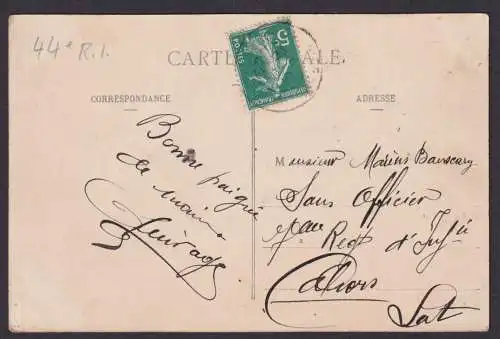 44e R.I.
CARTE POSTALE
5c
POSTES
CORRESPONDANCE
ADRESSE
Bonne poignée
de main
Monsieur Marius
Sous Officier
7eme Regt d'Inf ie
Cahors
Lot